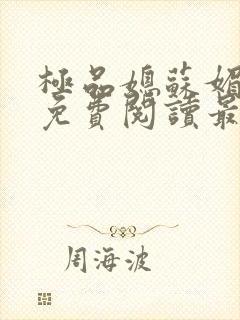 極品媳蘇媚
免費閱讀最
周海波